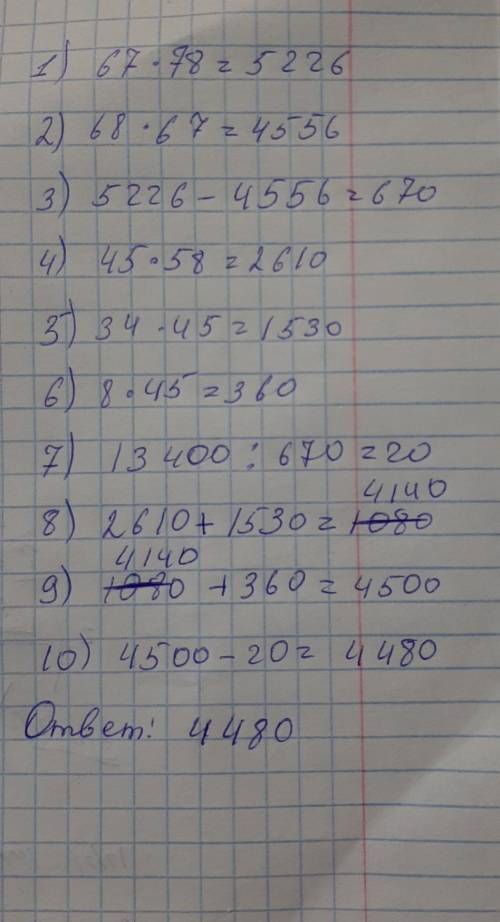 1) 67 · 78 = 5226
2) 68 · 67 = 4556
3) 5226 - 4556 = 670
4) 45 · 58 = 2610
5) 34 · 45 = 1530
6) 8 · 45 = 360
7) 13 400 : 670 = 20
4140
8) 2610 + 1530 = 1080
4140
9) 1080 + 360 = 4500
10) 4500 - 20 = 4480
Ответ: 4480